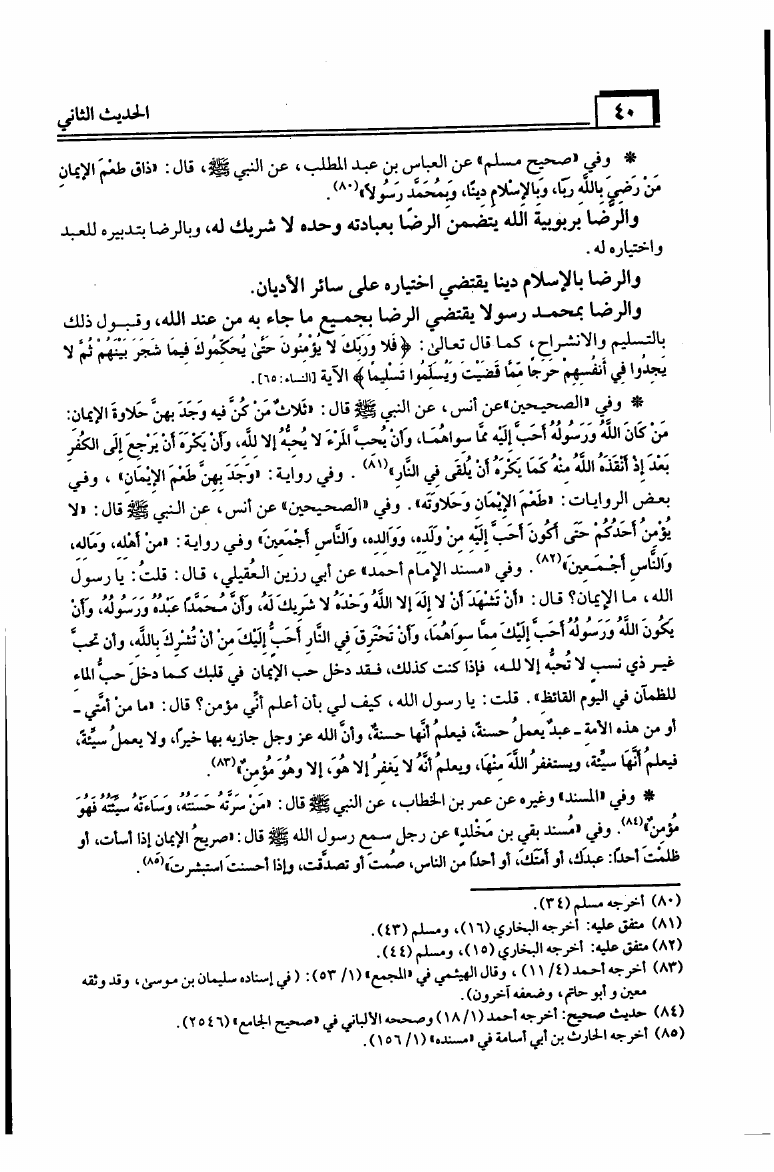 ٤٠
الحديث الثاني
* وفي «صحيح مسلم» عن العباس بن عبد المطلب، عن النبي ﷺ، قال: «ذاق طعْمَ الإيمانِ
مَنْ رَضِيَ بِاللَّهِ رَبًّا، وَبِالإسْلامِ دِينًا، وَبِمُحَمَّدٍ رَسُولاً»(٨٠).
والرِّضا بربوبية الله يتضمن الرضا بعبادته وحده لا شريك له، وبالرضا بتدبيره للعبد
واختياره له.
والرضا بالإسلام دينا يقتضي اختياره على سائر الأديان.
والرضا بمحمد رسولا يقتضي الرضا بجميع ما جاء به من عند الله، وقبول ذلك
بالتسليم والانشراح، كما قال تعالى: ﴿فَلا وَرَبِّكَ لا يُؤْمِنُونَ حَتَّىٰ يُحَكِّمُوكَ فِيمَا شَجَرَ بَيْنَهُمْ ثُمَّ لا
يَجِدُوا فِي أَنفُسِهِمْ حَرَجًا مِّمَّا قَضَيْتَ وَيُسَلِّمُوا تَسْلِيمًا﴾ الآية [النساء: ٦٥].
* وفي «الصحيحين» عن أنس، عن النبي ﷺ قال: «ثَلاثٌ مَنْ كُنَّ فيه وَجَدَ بهنَّ حَلاوةَ الإيمان:
مَنْ كَانَ اللَّهُ وَرَسُولُهُ أَحَبَّ إلَيْهِ مِمَّا سواهُمَا، وَأَنْ يُحبَّ المَرْءَ لا يُحبُّهُ إلا للَّهِ، وَأَنْ يَكْرَهَ أَنْ يَرْجعَ إلَى الكُفْرِ
بَعْدَ إذْ أَنْقَذَهُ اللَّهُ مِنْهُ كَمَا يَكْرَهُ أَنْ يُلْقَى فِي النَّارِ»(٨١). وفي رواية: «وَجَدَ بِهِنَّ طَعْمَ الإيْمَانِ»، وفي
بعض الروايات: «طَعْمَ الإيْمَانِ وَحَلاوَتَه». وفي «الصحيحين» عن أنس، عن النبي ﷺ قال: «لا
يُؤْمِنُ أَحَدُكُمْ حَتَّى أَكُونَ أَحَبَّ إلَيْهِ مِنْ وَلَدِهِ، وَوَالِدِهِ، وَالنَّاسِ أَجْمَعِينَ» وفي رواية: «مِنْ أَهْلِهِ، وَمَالِهِ،
وَالنَّاسِ أَجْمَعِينَ»(٨٢). وفي «مسند الإمام أحمد» عن أبي رزين العُقيلي، قال: قلتُ: يا رسول
الله، ما الإيمان؟ قال: «أَنْ تَشْهَدَ أَنْ لا إلَهَ إلا اللَّهُ وَحْدَهُ لا شَرِيكَ لَهُ، وَأَنَّ مُحَمَّدًا عَبْدُهُ وَرَسُولُهُ، وَأَنْ
يَكُونَ اللَّهُ وَرَسُولُهُ أَحَبَّ إلَيْكَ مِمَّا سِوَاهُمَا، وَأَنْ تَحْتَرِقَ فِي النَّارِ أَحَبُّ إلَيْكَ مِنْ أَنْ تُشْرِكَ بِاللَّهِ، وأن تحبَّ
غير ذي نسبٍ لا تُحبُّه إلا لله، فإذا كنت كذلك، فقد دخل حب الإيمان في قلبك كما دخلَ حبُّ الماءِ
للظمآن في اليوم القائظ». قلت: يا رسول الله، كيف لي بأن أعلم أنِّي مؤمن؟ قال: «ما منْ أُمَّتي ـ
أو من هذه الأمة ـ عبدٌ يعملُ حسنةً، فيعلمُ أنَّها حسنةٌ، وأنَّ الله عز وجل جازيه بها خيرًا، ولا يعملُ سيِّئةً،
فيعلمُ أنَّها سيِّئة، ويستغفرُ اللَّهَ مِنْهَا، ويعلمُ أنَّهُ لا يَغفرُ إلا هُوَ، إلا وهُوَ مُؤمِنٌ»(٨٣).
* وفي «المسند» وغيره عن عمر بن الخطاب، عن النبي ﷺ قال: «مَنْ سَرَّتْهُ حَسَنَتُهُ، وَسَاءَتْهُ سَيِّئَتُهُ فَهُوَ
مُؤْمِنٌ»(٨٤). وفي «مُسند بقي بن مَخْلَد» عن رجل سمع رسول الله ﷺ قال: «صريحُ الإيمان إذا أسأت، أو
ظلمْتَ أحدًا: عبدَك، أو أَمَتَكَ، أو أحدًا من الناس، صُمتَ أو تصدَّقت، وإذا أحسنتَ استبشرتَ»(٨٥).
(٨٠) أخرجه مسلم (٣٤).
(٨١) متفق عليه: أخرجه البخاري (١٦)، ومسلم (٤٣).
(٨٢) متفق عليه: أخرجه البخاري (١٥)، ومسلم (٤٤).
(٨٣) أخرجه أحمد (٤/ ١١)، وقال الهيثمي في «المجمع» (١/ ٥٣): (في إسناده سليمان بن موسى، وقد وثقه
معين و أبو حاتم، وضعفه آخرون).
(٨٤) حديث صحيح: أخرجه أحمد (١/ ١٨) وصححه الألباني في «صحيح الجامع» (٢٥٤٦).
(٨٥) أخرجه الحارث بن أبي أسامة في «مسنده» (١/ ١٥٦).